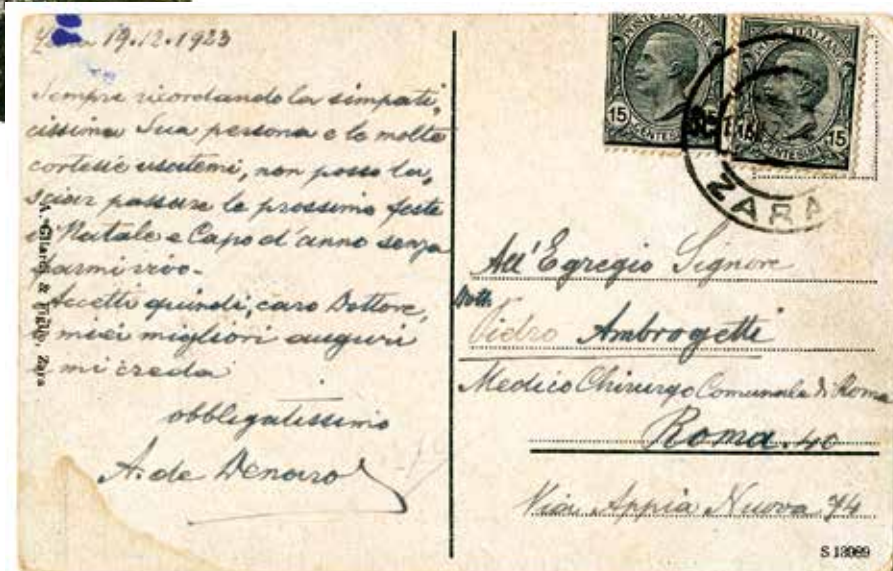 Zara 19.12.1923
Sempre ricordando la simpati,
cissima Sua persona e le molte
cortesie usatemi, non posso la,
sciar passare le prossime feste
di Natale e Capo d'anno senza
farmi vivo.
Accetti quindi, caro Dottore,
i miei migliori auguri
e mi creda
obbligatissimo
A. de Denaro
A. Gilardi & Figlio, Zara
POSTE ITALIANE
15
CENTESIMI
POSTE ITALIANE
15
CENTESIMI
ZARA
All' Egregio Signore
Dott.
Pidro Ambrogetti
Medico Chirurgo Comunale di Roma
Roma. 40
Via Appia Nuova 74
S 13989